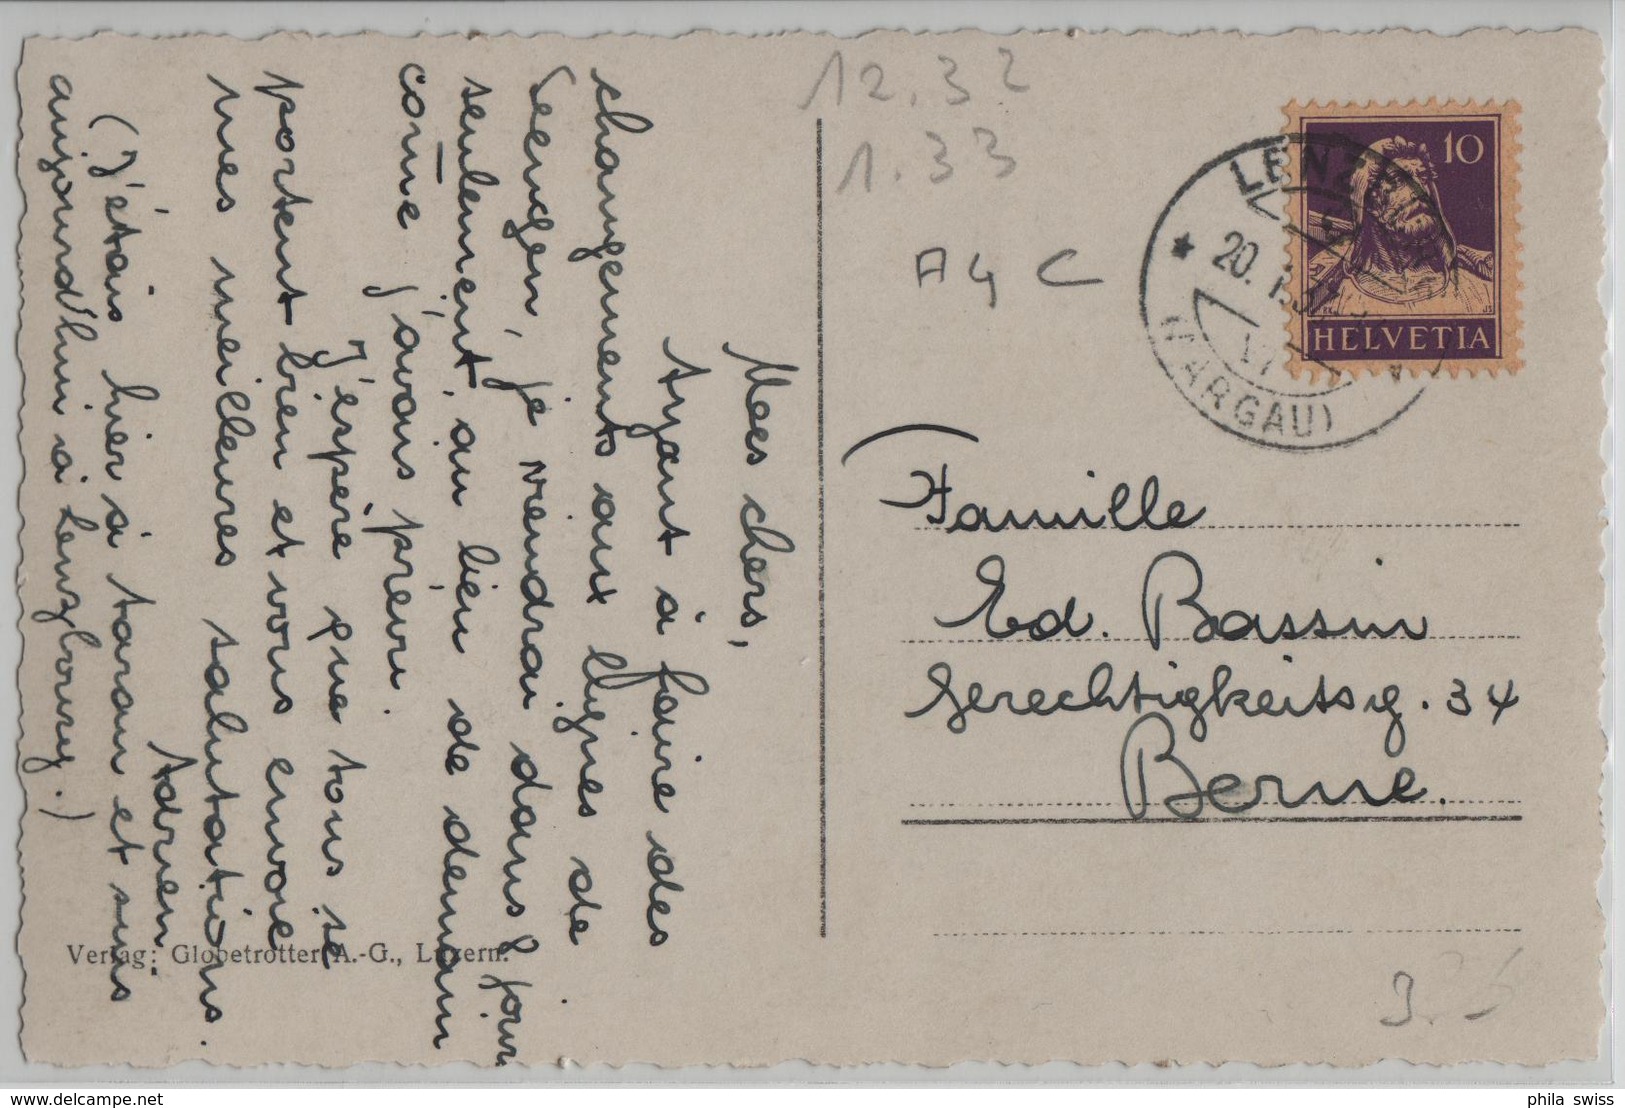 Mes chers,
Ayant à faire des
changements aux lignes de
Seengen, je viendrai dans 8 jours
seulement, au lieu de demain
come j'avais prévu.
J'espère que tous se
portent bien et vous envoie
mes meilleures salutations.
Adrien
(J'étais hier à Aarau et suis
aujourd'hui à Lenzbourg.)
Verlag: Globetrotter A.-G., Luzern.
12.32
1.33
A4 C
LENZBURG
20. I.
VI
(AARGAU)
10
HELVETIA
Famille
Ed. Bassin
Gerechtigkeitsg. 34
Berne.
3.
phila swiss